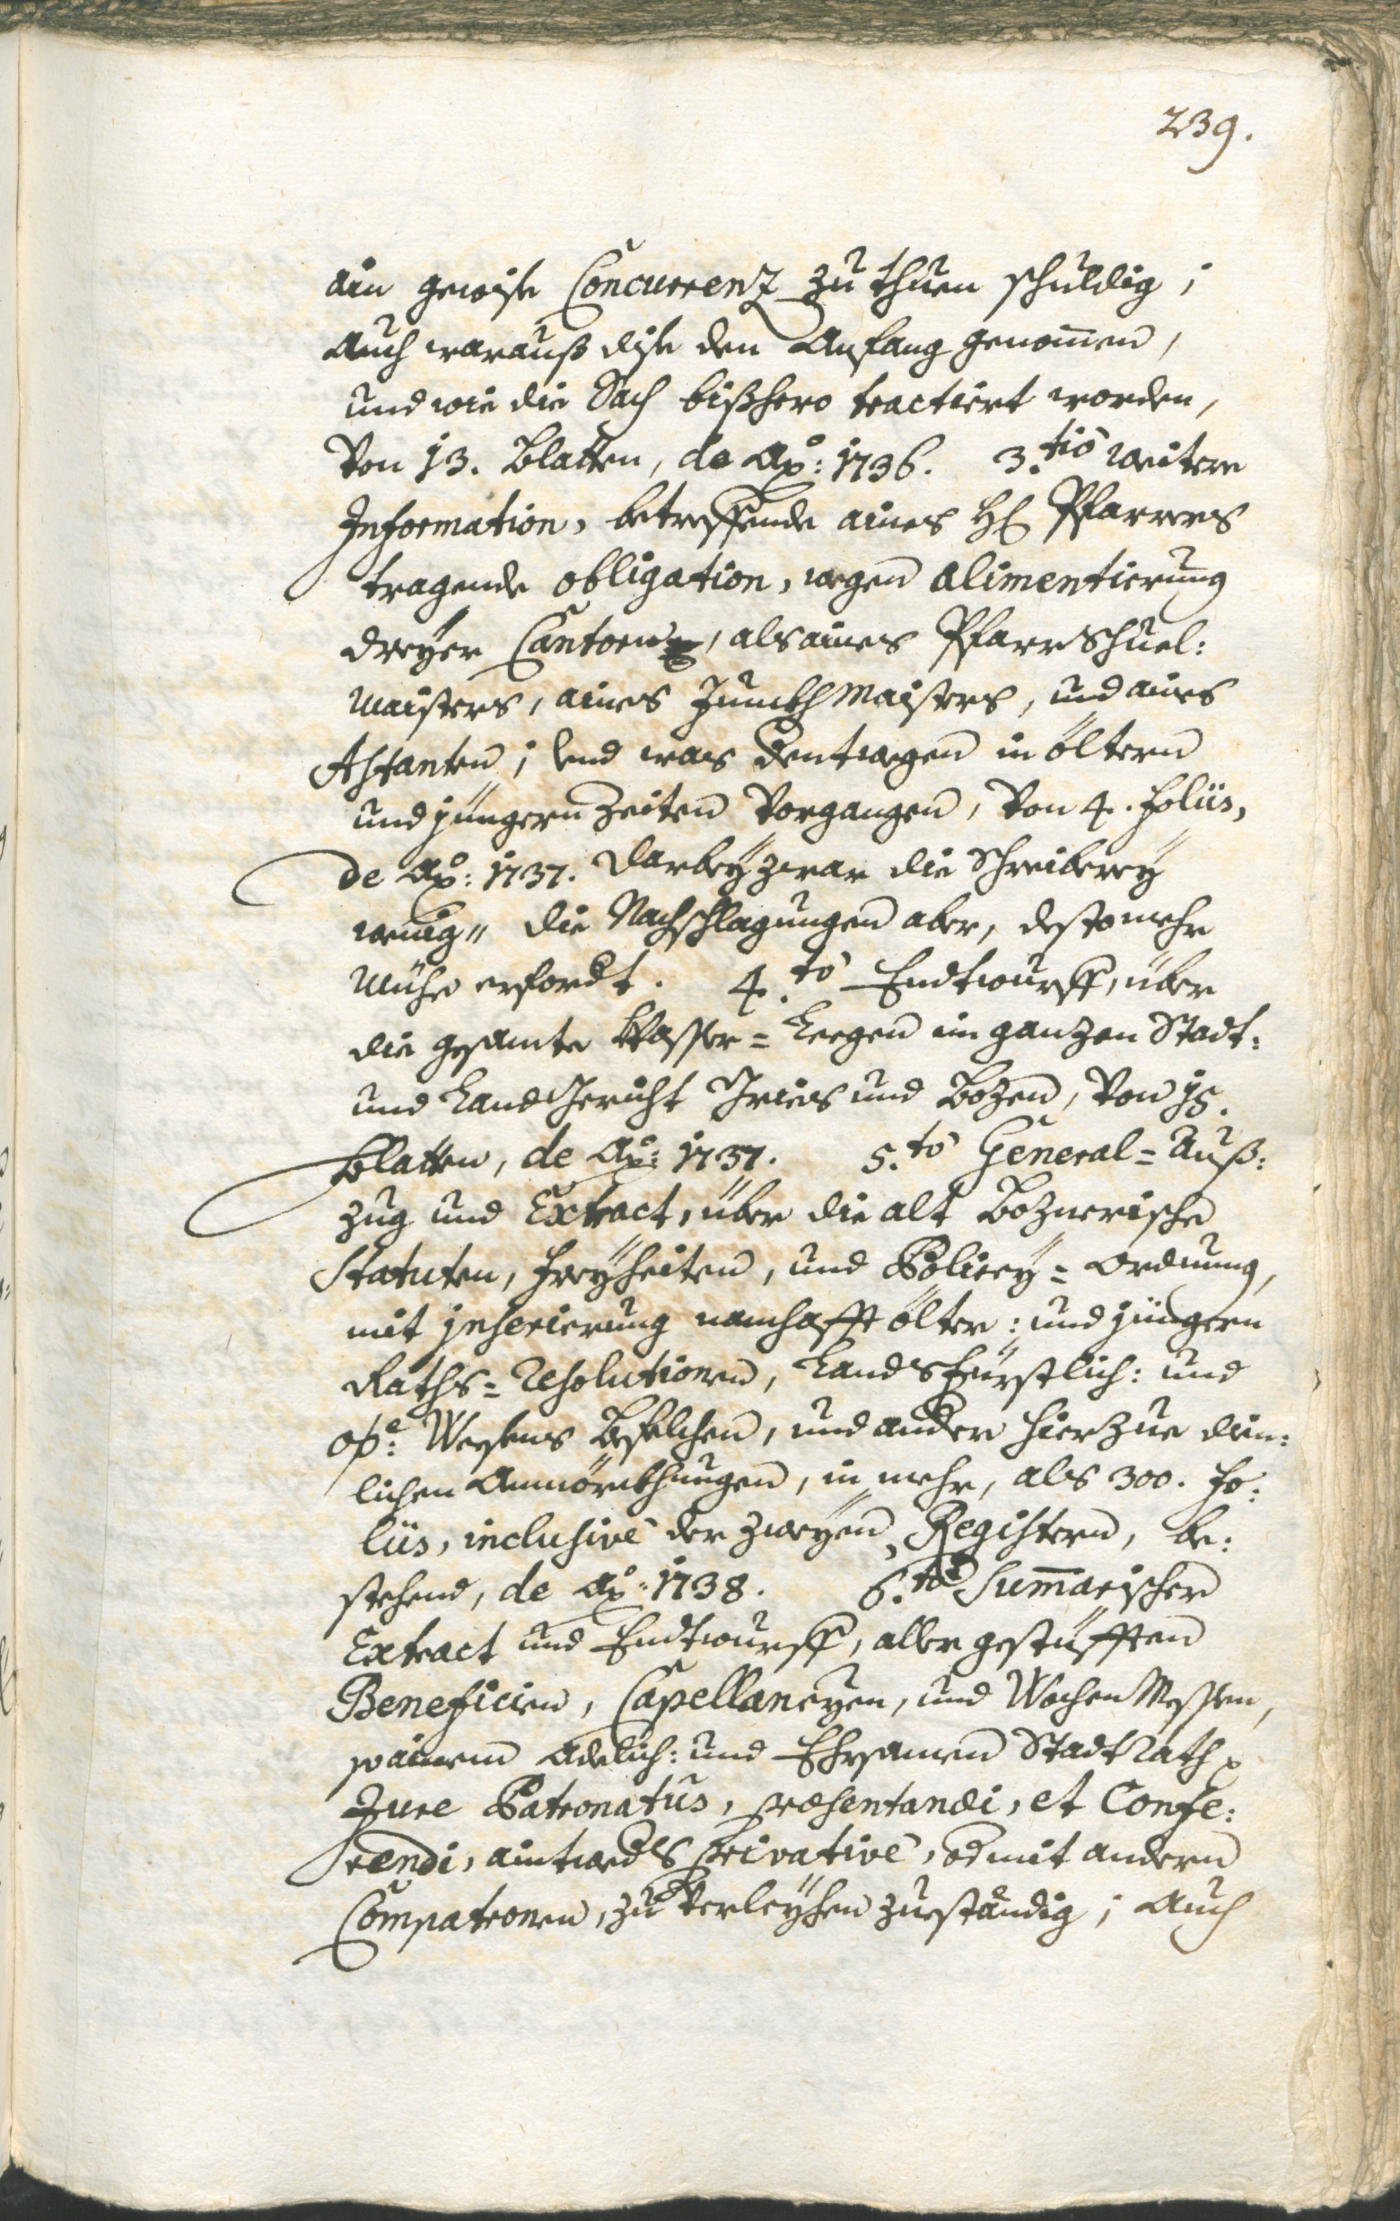 239.
ain gewise Concurrenz zu thuen schuldig;
Auch warauß dise den Anfang genomen,
und wie die Sach bißhero tractiert worden,
Von 13. Blatten, de Aõ: 1736. 3.tiò weitere
Information, betreffende aines H: Pfarrers
tragende obligation, wegen alimentierung
dreyer Cantorn, als aines Pfarrschuel:
maisters, aines Junckhmaisters, und aines
Astanten; und was dentwegen in öltern
und jüngern Zeiten Vorgangen, Von 4. foliis,
de Aõ: 1737. Darbey zwar die Schreiberey
wenig" die Nachschlagungen aber, desto mehr
Mühe erfordt. 4.tò Endtwurff, über
die gesamte Wasser= Leegen im ganzen Stadt:
und Landgericht Gries und Bozen, Von 15.
Blatten, de Aõ: 1737. 5.tò General=Auß:
zug und Extract, über die alt Boznerische
Statuten, Freyheiten, und Policey=Ordnung,
mit inserierung namhafft ölter: und jüngern
Raths=Resolutionen, Landsfürstlich: und
o:ö: Weesens Befelchen, und ander hierzue dien:
lichen Anmörckhungen, in mehr, als 300. fo:
liis, inclusivè der zweyen Registern, be:
stehend, de Aõ: 1738. 6.tò Summarischer
Extract und Endtwurff, aller gestüfften
Beneficien, Capellaneyen, und Wochen Messen,
so ainem Adelich: und Ehrsamen Stadt Rath
Jure Patronatus, præsentandi, et Confe:
rendi, aintweders privativè, od mit andern
Compatronen, zu Verleyhen zueständig; Auch